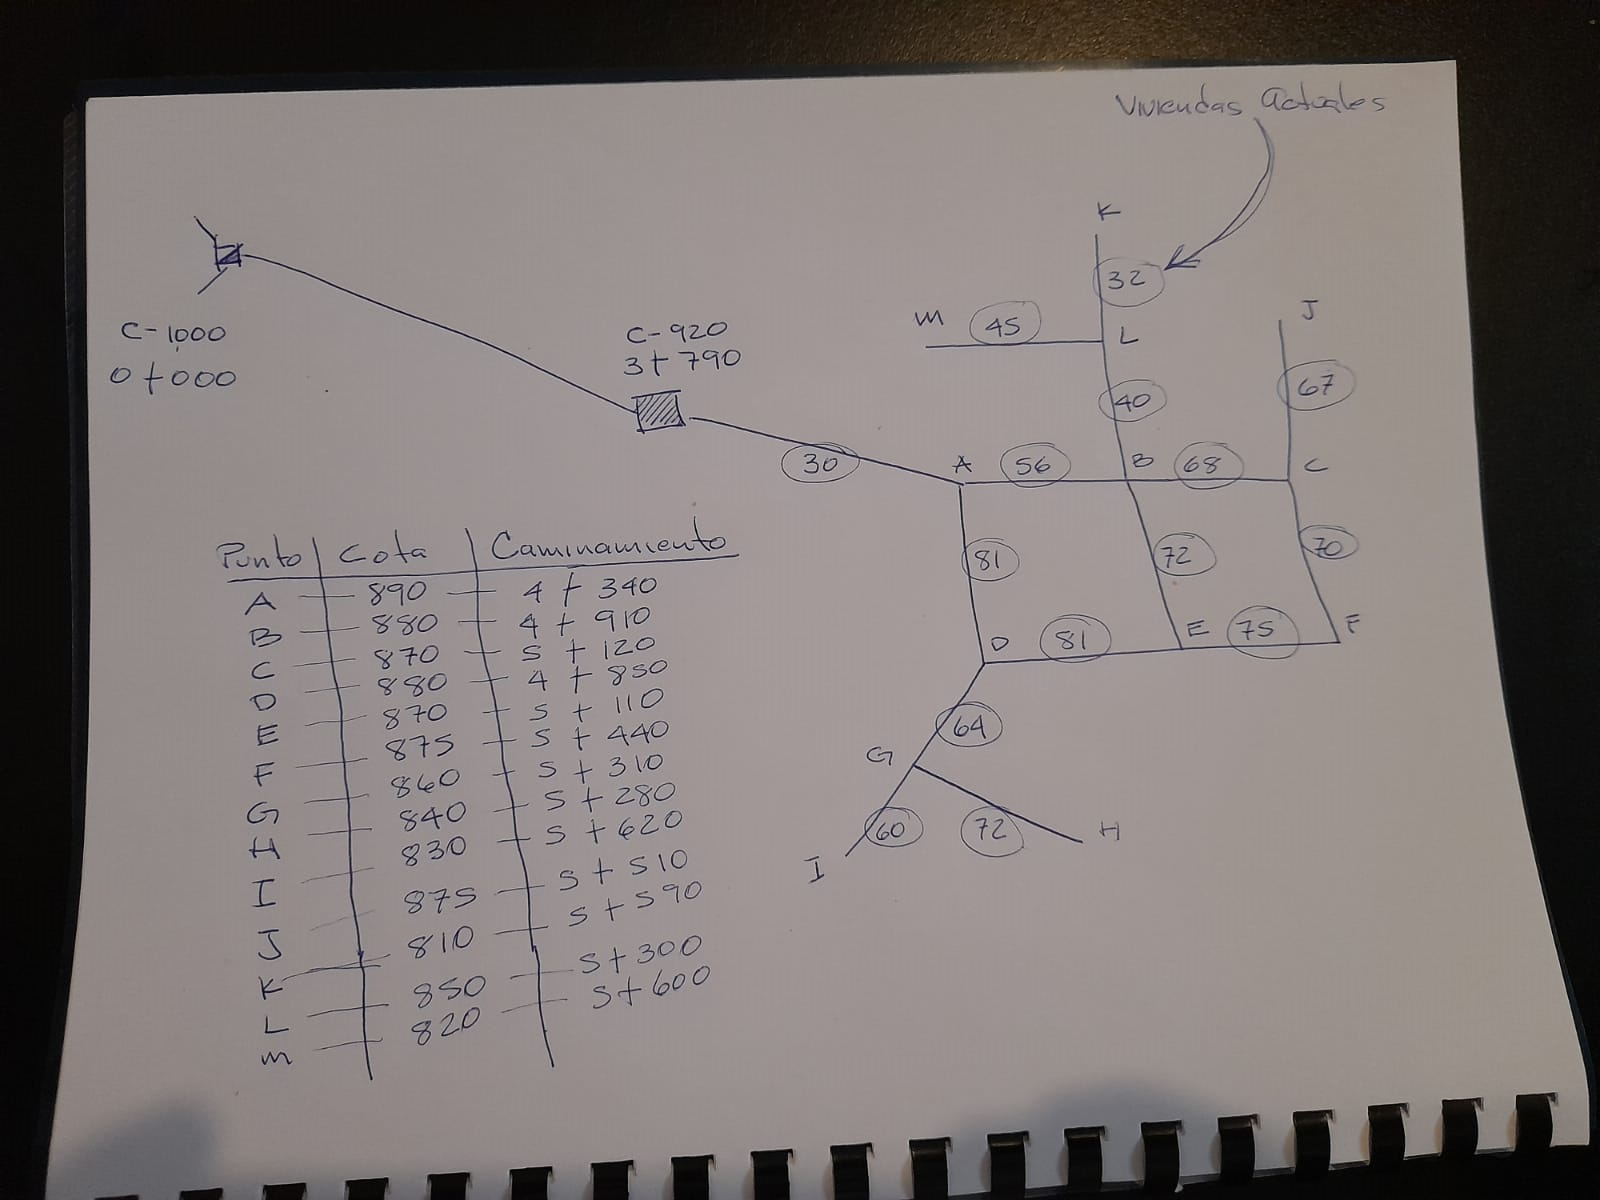 Viviendas Actuales
K
32
J
m 45
L
C-1000
0+000
C-920
3+790
40
67
30
A 56 B 68 C
81
72
70
D 81 E 75 F
64
G
60 72 H
I
Punto Cota Caminamiento
A 890 4+340
B 880 4+910
C 870 5+120
D 880 4+850
E 870 5+110
F 875 5+440
G 860 5+310
H 840 5+280
I 830 5+620
J 875 5+510
K 810 5+590
L 850 5+300
m 820 5+600